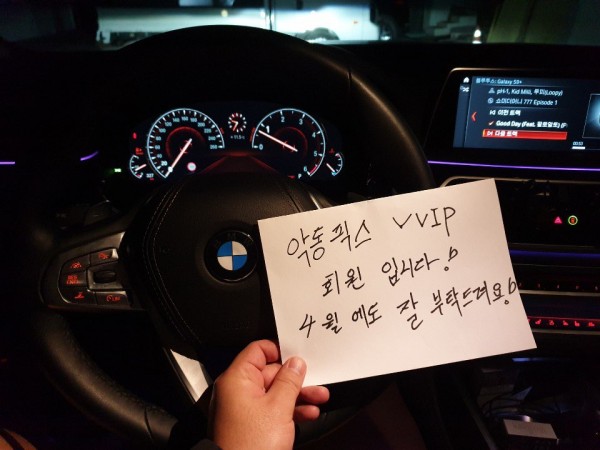 블루투스: Galaxy S9+
pH-1, Kid Milli, 루피(Loopy)
쇼미더머니 777 Episode 1
이전 트랙
Good Day (Feat. 팔로알토) (F
다음 트랙
악동픽스 VVIP
회원 입니다!
4월에도 잘 부탁드려요!